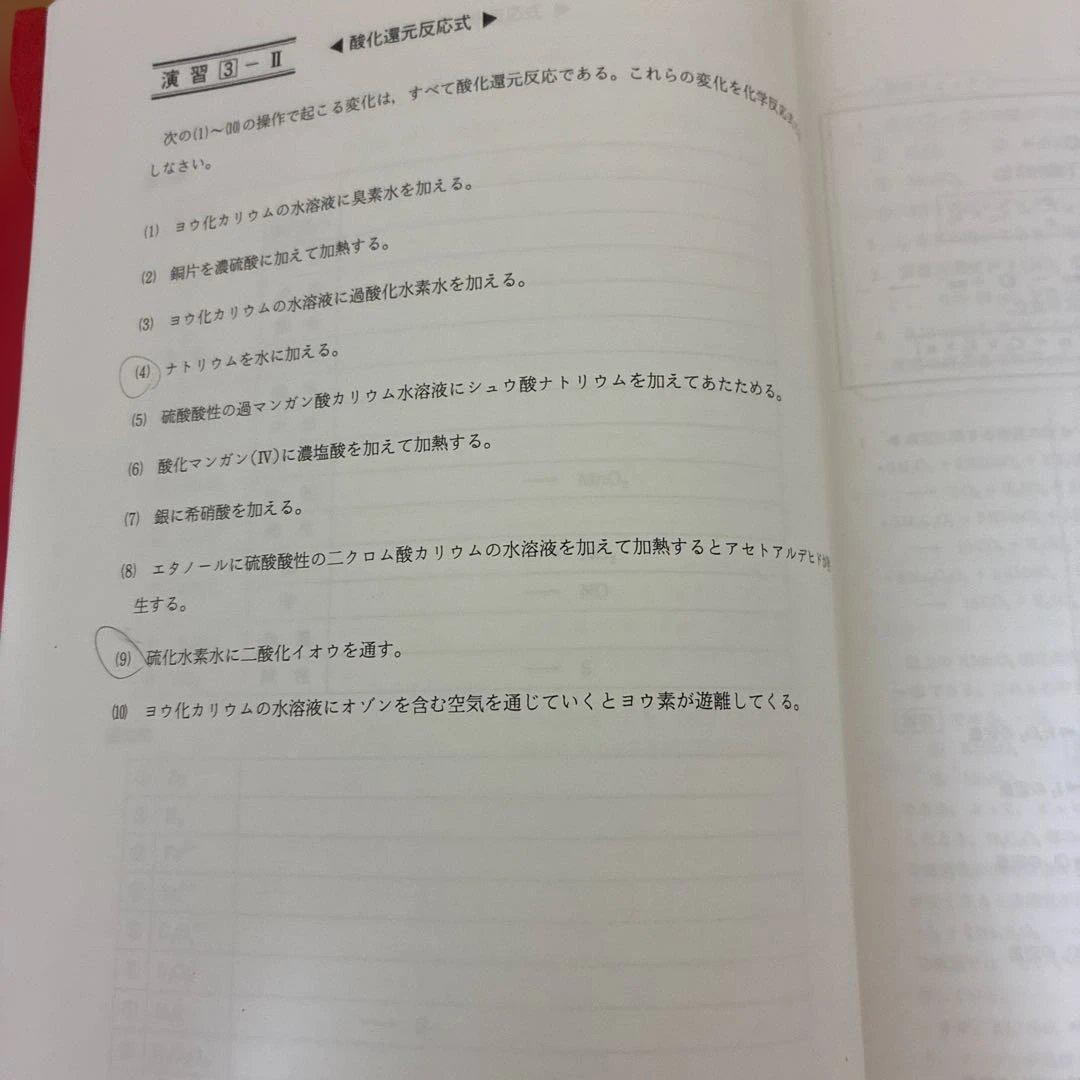 演習 3 － Ⅱ
◀ 酸化還元反応式 ▶
次の(1)～(10)の操作で起こる変化は，すべて酸化還元反応である。これらの変化を化学反
しなさい。
(1) ヨウ化カリウムの水溶液に臭素水を加える。
(2) 銅片を濃硫酸に加えて加熱する。
(3) ヨウ化カリウムの水溶液に過酸化水素水を加える。
(4) ナトリウムを水に加える。
(5) 硫酸酸性の過マンガン酸カリウム水溶液にシュウ酸ナトリウムを加えてあたためる。
(6) 酸化マンガン(Ⅳ)に濃塩酸を加えて加熱する。
(7) 銀に希硝酸を加える。
(8) エタノールに硫酸酸性の二クロム酸カリウムの水溶液を加えて加熱するとアセトアルデヒド
生する。
(9) 硫化水素水に二酸化イオウを通す。
(10) ヨウ化カリウムの水溶液にオゾンを含む空気を通じていくとヨウ素が遊離してくる。